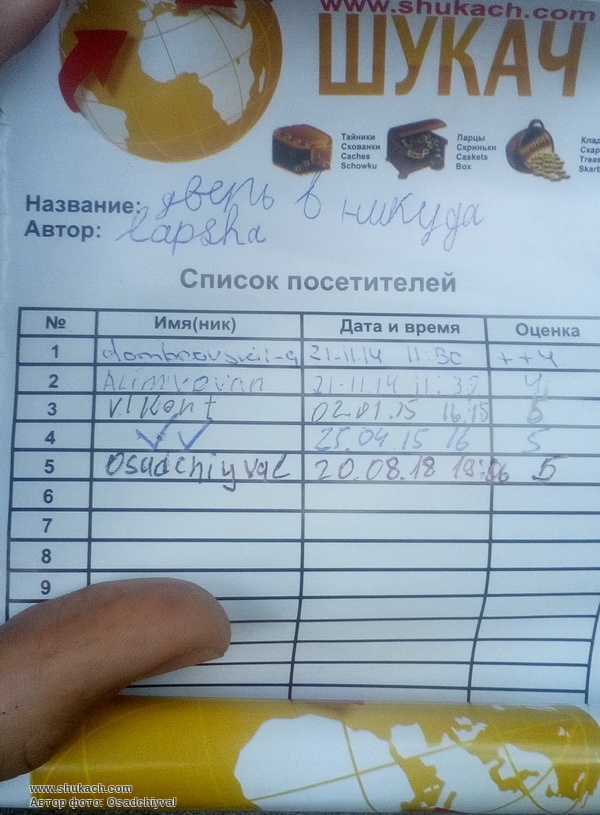 www.shukach.com
ШУКАЧ
Тайники
Схованки
Caches
Schowku
Ларцы
Скриньки
Caskets
Box
Название: дверь в никуда
Автор: lapsha
Список посетителей
№ Имя(ник) Дата и время Оценка
1 21.11.14 11:30 ++4
2 21.11.14
3 vikont 02.01.15 16:15 5
4 25.04.15 16 5
5 Osadchiyval 20.08.18 5
6
7
8
9
www.shukach.com
Автор фото: Osadchiyval